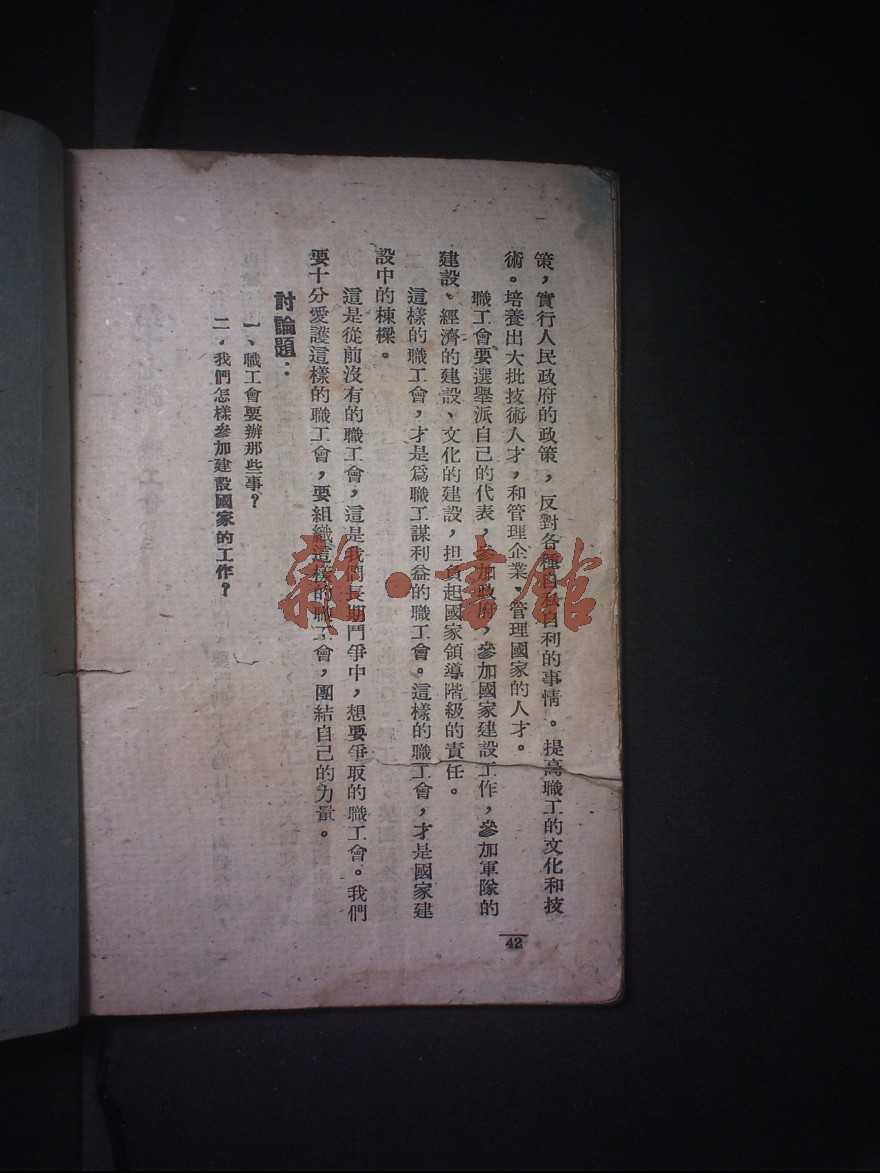 策，實行人民政府的政策，反對各種自私自利的事情。提高職工的文化和技
術。培養出大批技術人才，和管理企業、管理國家的人才。
職工會要選舉派自己的代表，參加政府，參加國家建設工作，參加軍隊的
建設、經濟的建設、文化的建設，担負起國家領導階級的責任。
這樣的職工會，才是爲職工謀利益的職工會。這樣的職工會，才是國家建
設中的棟樑。
這是從前沒有的職工會，這是我們長期鬥爭中，想要爭取的職工會。我們
要十分愛護這樣的職工會，要組織這樣的職工會，團結自己的力量。
討論題：
一、職工會要辦那些事？
二、我們怎樣參加建設國家的工作？
42
雜·書館